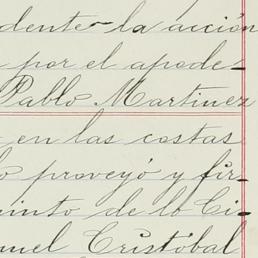 dente la acción
por el apode-
Pablo Martinez
en las costas
lo proveyó y fir-
cinto de lo Ci-
nuel Cristóbal